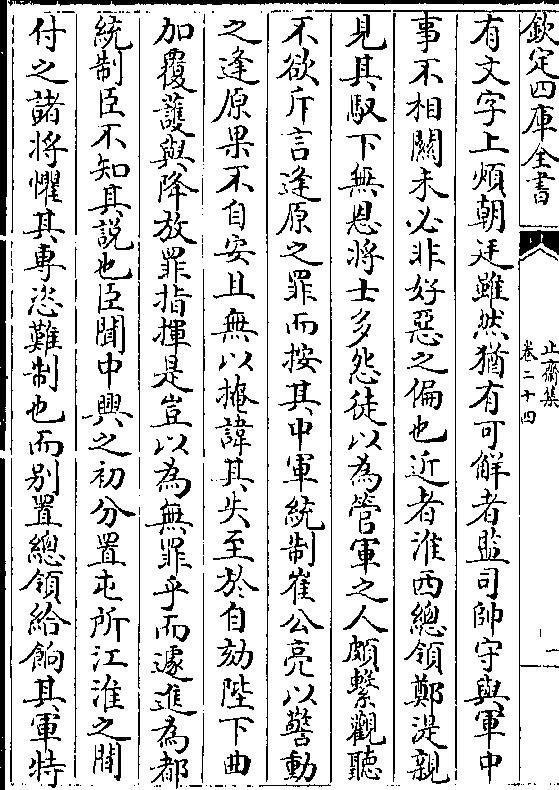 欽定四庫全書
止齋集
卷二十四
一
有文字上煩朝廷雖然猶有可解者監司帥守與軍中
事不相關未必非好惡之偏也近者淮西總領鄭湜親
見其馭下無恩將士多怨徒以為管軍之人頗繫觀聽
不欲斥言逢原之罪而按其中軍統制崔公亮以警動
之逢原果不自安且無以掩諱其失至於自劾陛下曲
加覆護與降放罪指揮是豈以為無罪乎而遽進為都
統制臣不知其説也臣聞中興之初分置屯所江淮之閒
付之諸將懼其專恣難制也而别置總領給餉其軍特